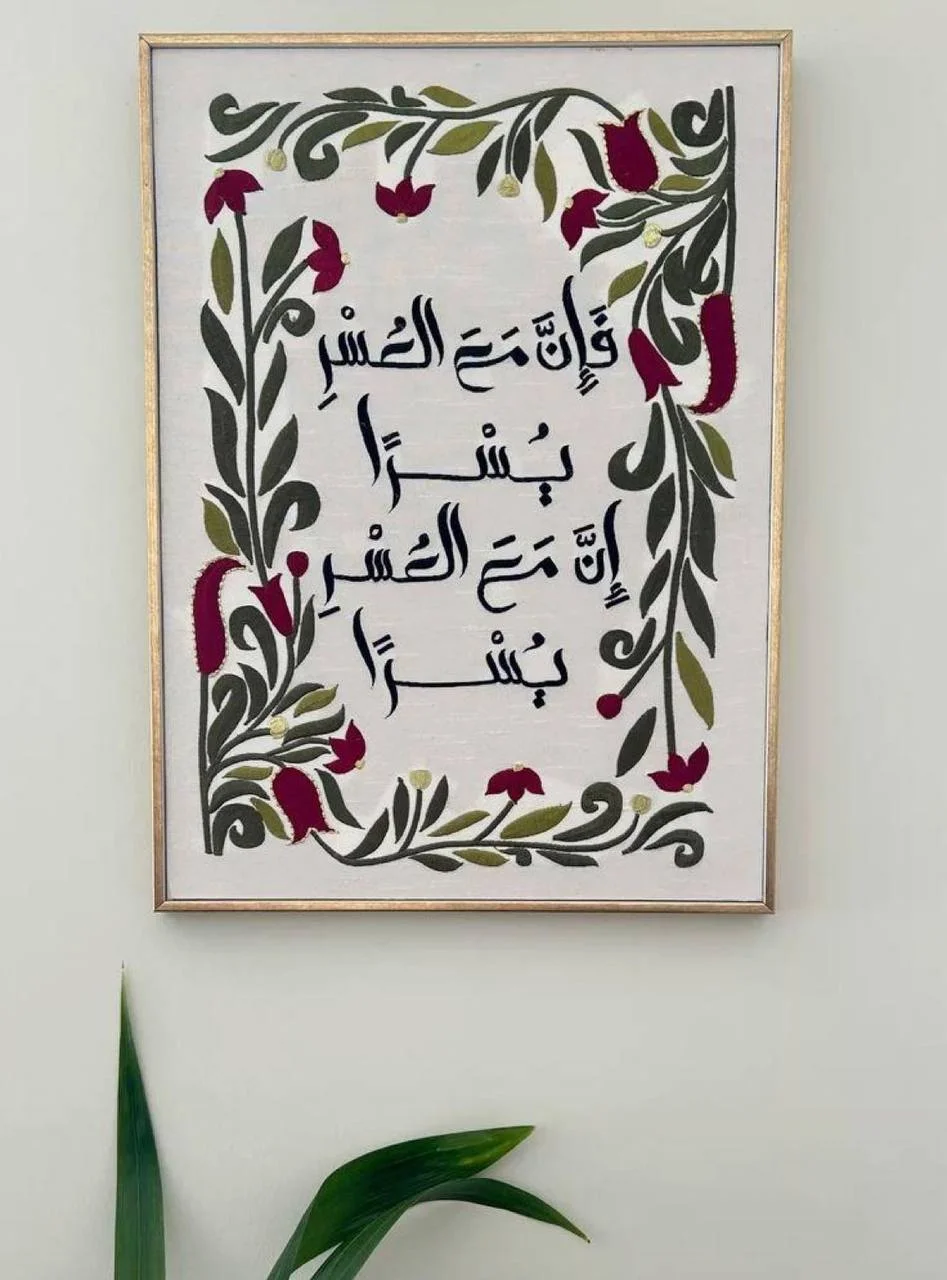 فَإِنَّ مَعَ العُسْرِ
يُسْرًا
إِنَّ مَعَ العُسْرِ
يُسْرًا